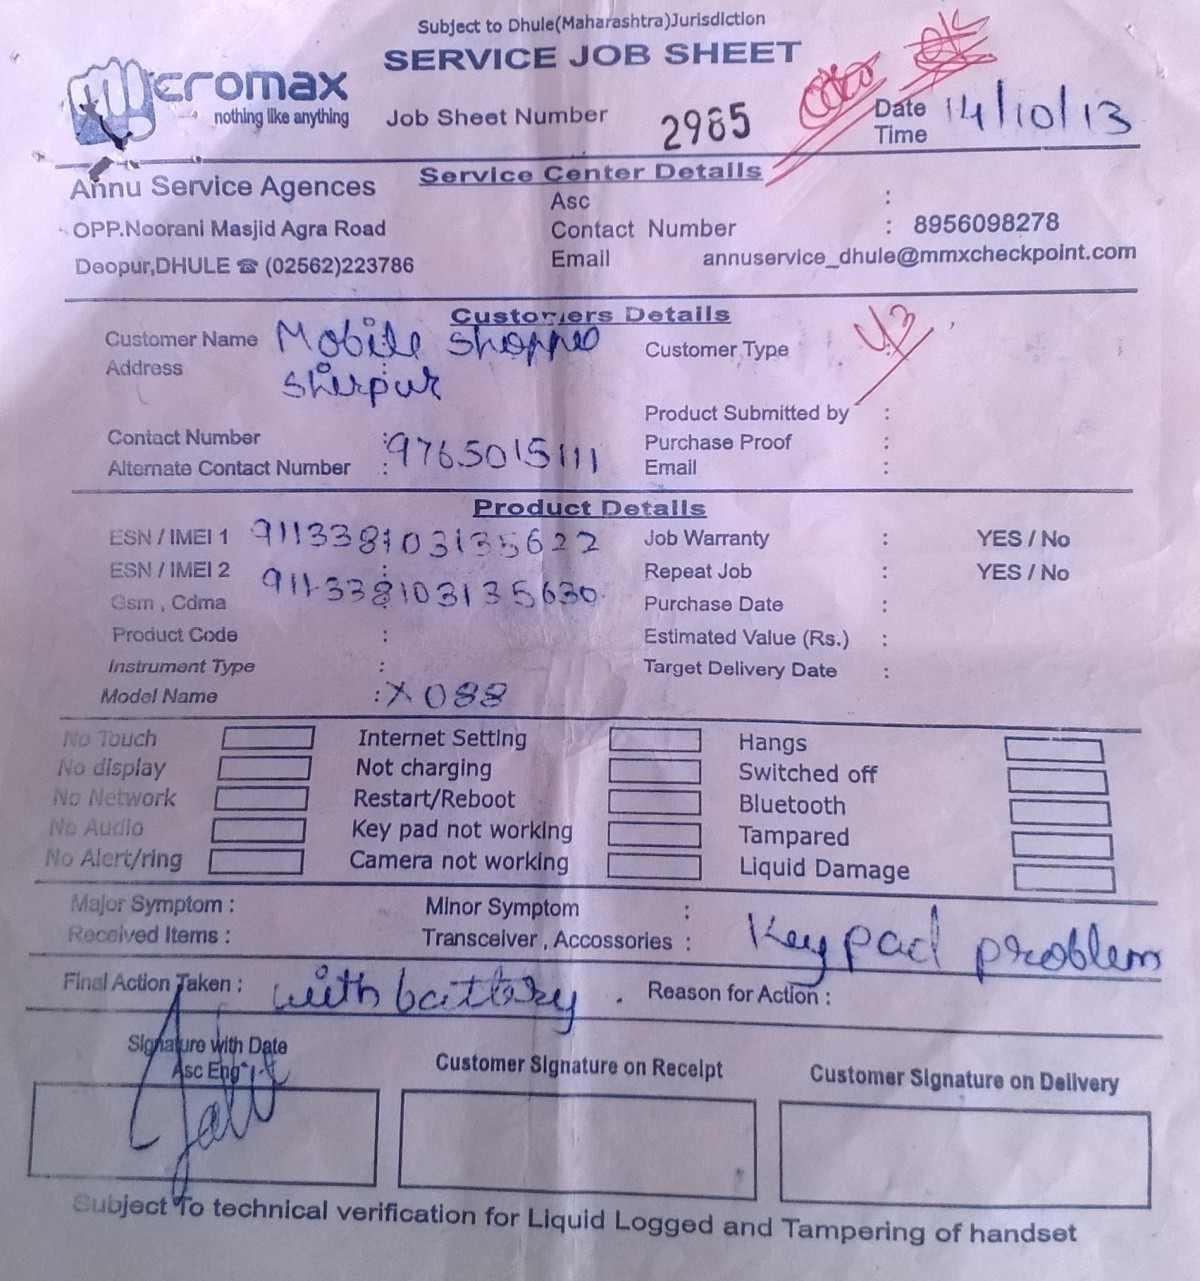 Subject to Dhule(Maharashtra)Jurisdiction
SERVICE JOB SHEET
micromax
nothing like anything
Job Sheet Number 2985
Date 14/10/13
Time
Service Center Details
Annu Service Agences
OPP.Noorani Masjid Agra Road
Deopur,DHULE ☎ (02562)223786
Asc :
Contact Number : 8956098278
Email annuservice_dhule@mmxcheckpoint.com
Customers Details
Customer Name Mobile Shoppee
Address Shirpur
Customer Type
Product Submitted by :
Contact Number : 9765015111
Purchase Proof :
Alternate Contact Number :
Email :
Product Details
ESN / IMEI 1 911338103135622
Job Warranty : YES / No
ESN / IMEI 2 911338103135630
Repeat Job : YES / No
Gsm , Cdma
Purchase Date :
Product Code :
Estimated Value (Rs.) :
Instrument Type :
Target Delivery Date :
Model Name : X088
No Touch Internet Setting Hangs
No display Not charging Switched off
No Network Restart/Reboot Bluetooth
No Audio Key pad not working Tampared
No Alert/ring Camera not working Liquid Damage
Major Symptom : Minor Symptom :
Received Items : Transceiver , Accossories : Key pad problem
Final Action Taken : with battery . Reason for Action :
Signature with Date
Asc Eng
Customer Signature on Receipt
Customer Signature on Delivery
Subject To technical verification for Liquid Logged and Tampering of handset